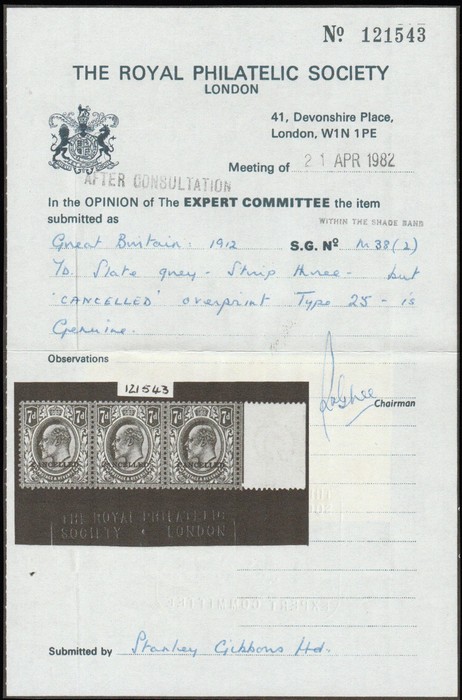 Nº 121543
THE ROYAL PHILATELIC SOCIETY
LONDON
41, Devonshire Place,
London, W1N 1PE
Meeting of 21 APR 1982
AFTER CONSULTATION
In the OPINION of The EXPERT COMMITTEE the item
submitted as
WITHIN THE SHADE BAND
Great Britain: 1912 S.G. Nº M38(2)
7D. Slate grey - Strip three - but
'CANCELLED' overprint Type 25 - is
Genuine.
Observations
Chairman
121543
7d 7d 7d
CANCELLED CANCELLED CANCELLED
THE ROYAL PHILATELIC
SOCIETY • LONDON
EXPERT COMMITTEE
Submitted by Stanley Gibbons Ltd.